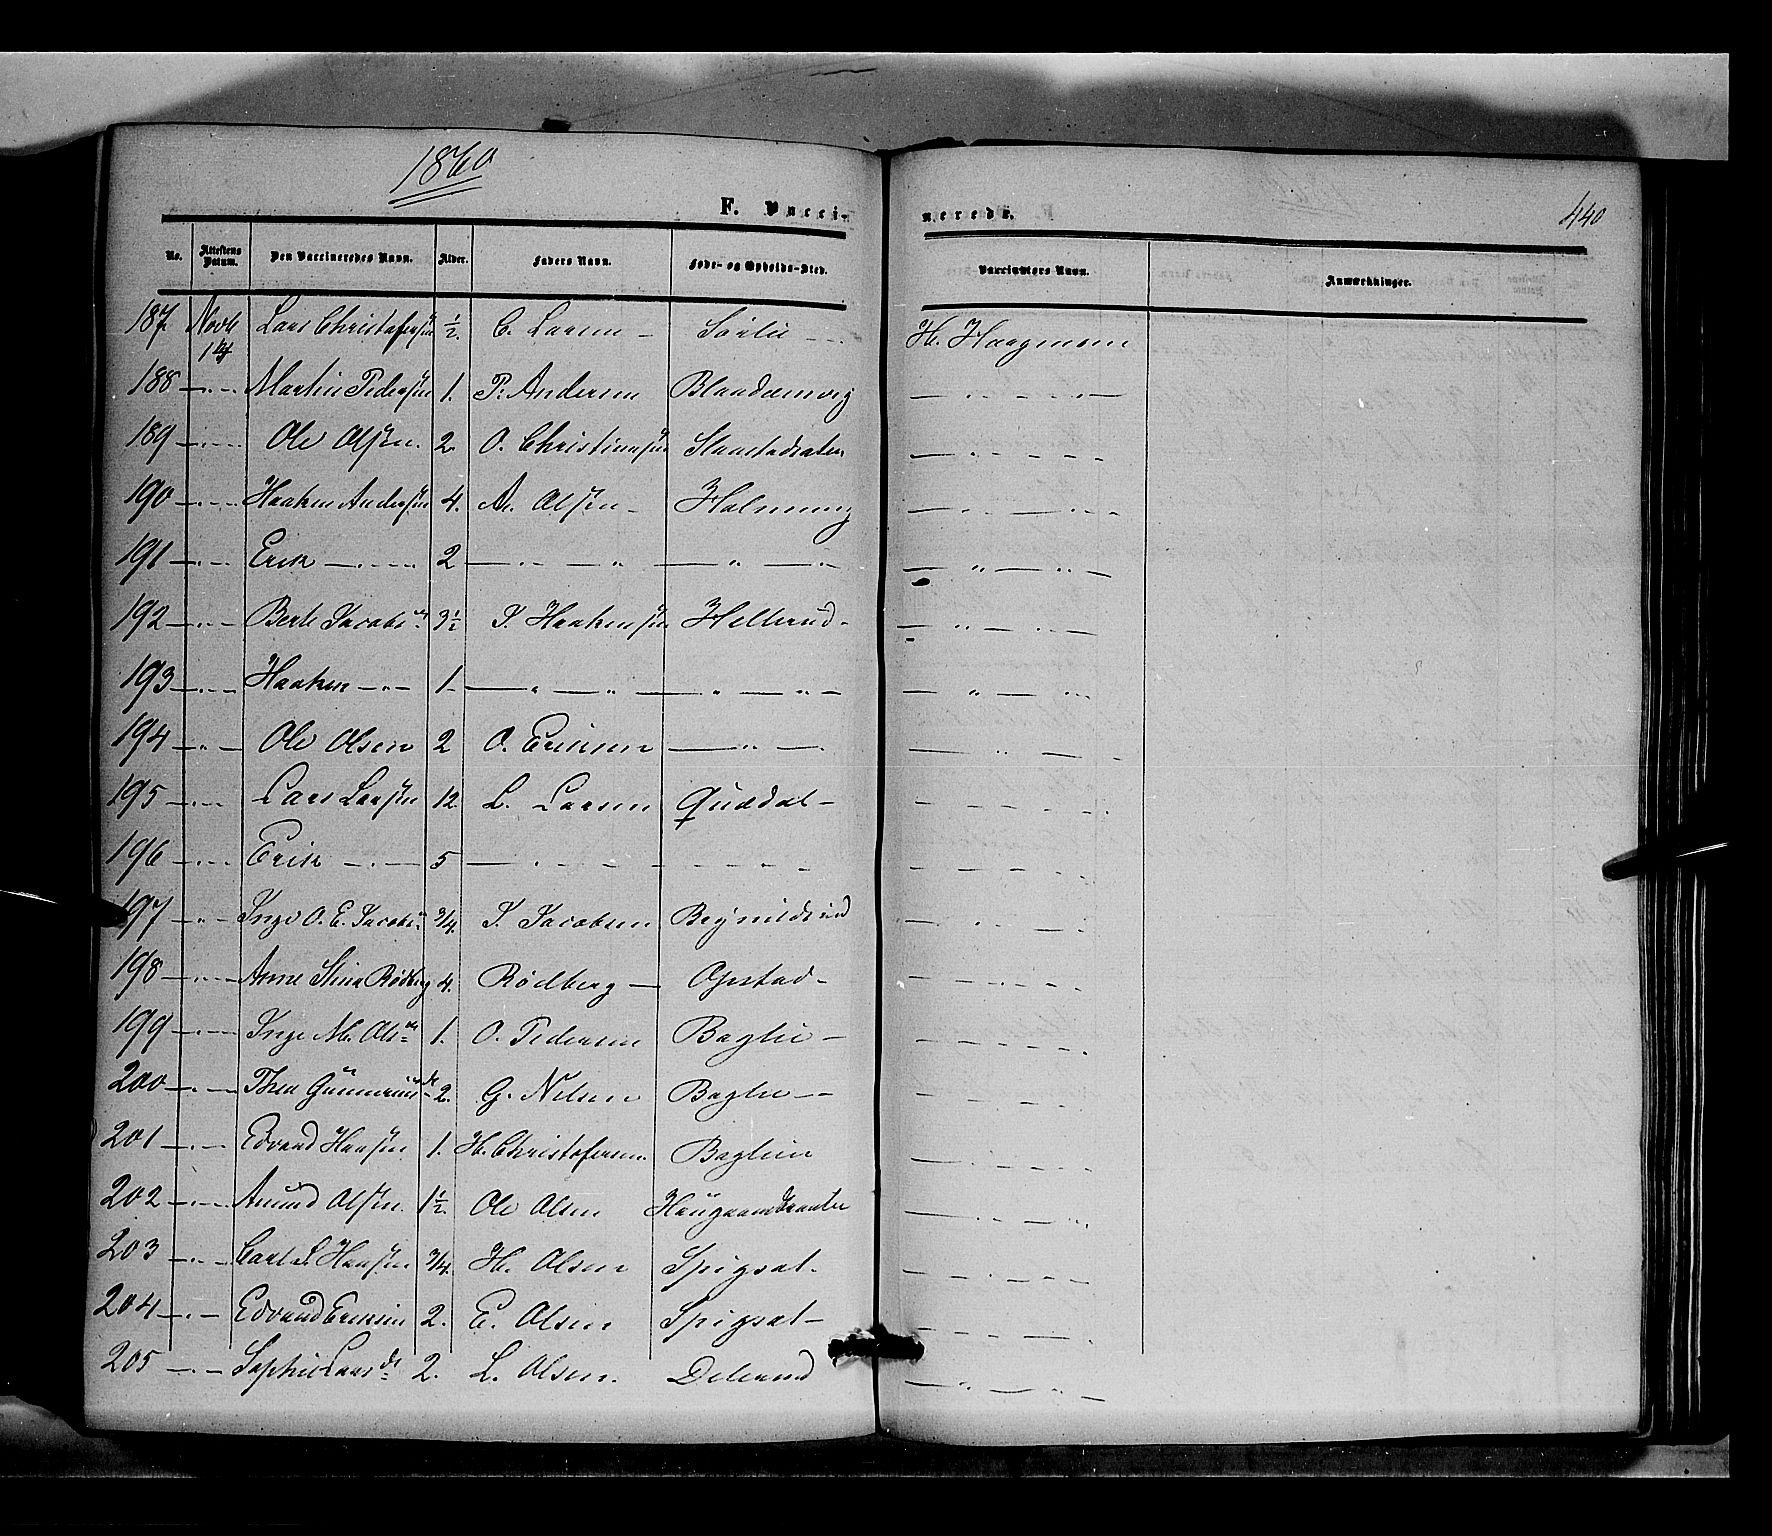 1860
F. Vacci-
nerede.
440
No. Attestens Datum. Den Vaccineredes Navn. Alder. Faders Navn. Føde- og Opholds-Sted. Vaccinators Navn. Anmærkninger.
187 Novb 14 Lars Christofersen ½. C. Larsen - Sørlie - H. Haagensen
188 -"- Martin Pedersen 1. P. Andersen
189 -"- Ole Olsen. 2. O. Christiansen
190 -"- Haaken Andersen 4. A. Olsen -
191 -"- Erik -"- 2 -"-"- -"-"- -"-"-
192 -"- 3½ J. Haakensen Hellerud -
193 -"- Haaken -"- 1 -"-"- -"-"- -"-
194 -"- Ole Olsen 2 O. Ericsen -"-
195 -"- Lars Larsen 12 L. Larsen Quædal -
196 -"- Erik -"- 5
197 -"- Inge O. E. Jacobs ¾. J. Jacobsen
198 -"- Anne Stina Rødberg 4. Rødberg - Opstad -
199 -"- Inge M. Ols 1. O. Pedersen Baglie -
200 -"- Thea 2. G. Nilsen Baglie -
201 -"- Edvard Hansen 1. H. Christofersen. Baglien
202 -"- Amund Olsen. 1½. Ole Olsen
203 -"- Carl Hansen ¾. H. Olsen Spigset.
204 -"- Edvard Ericksen 2. E. Olsen Spigset -
205 -"- Sophie Larsdt 2. L. Olsen.